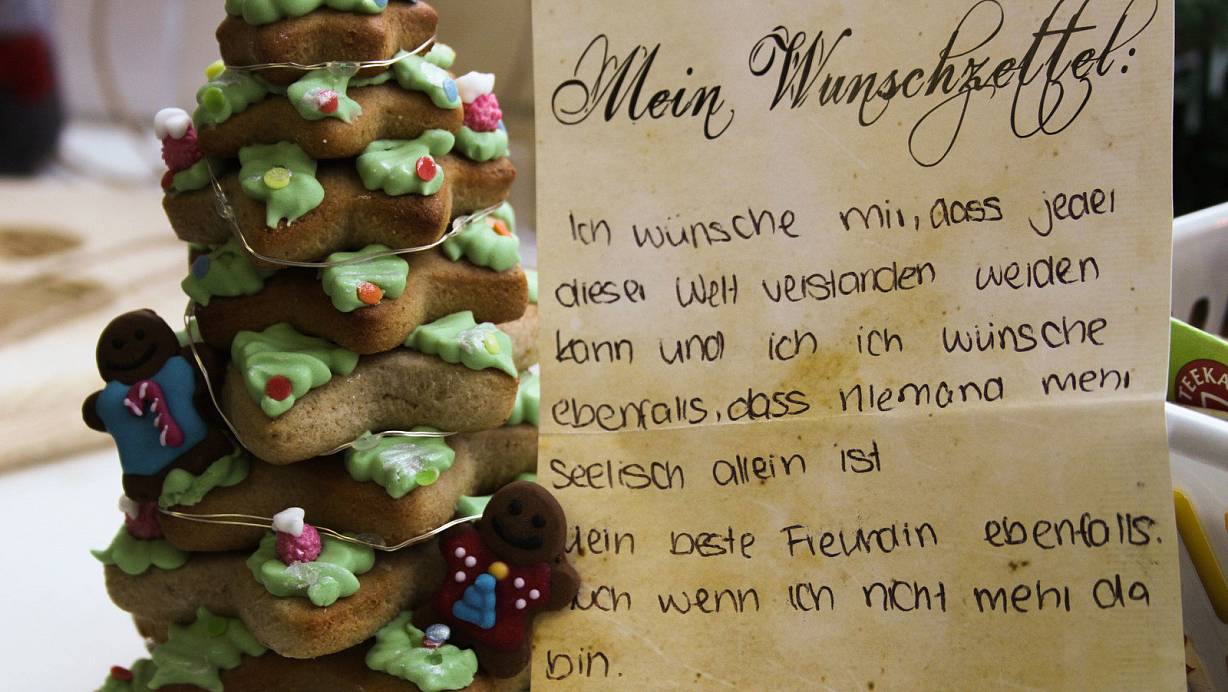 Mein Wunschzettel:
Ich wünsche mir, dass jeder
dieser Welt verstanden werden
kann und ich ich wünsche
ebenfalls, dass niemand mehr
seelisch allein ist
Mein beste Freundin ebenfalls.
Auch wenn ich nicht mehr da
bin.
TEEKA